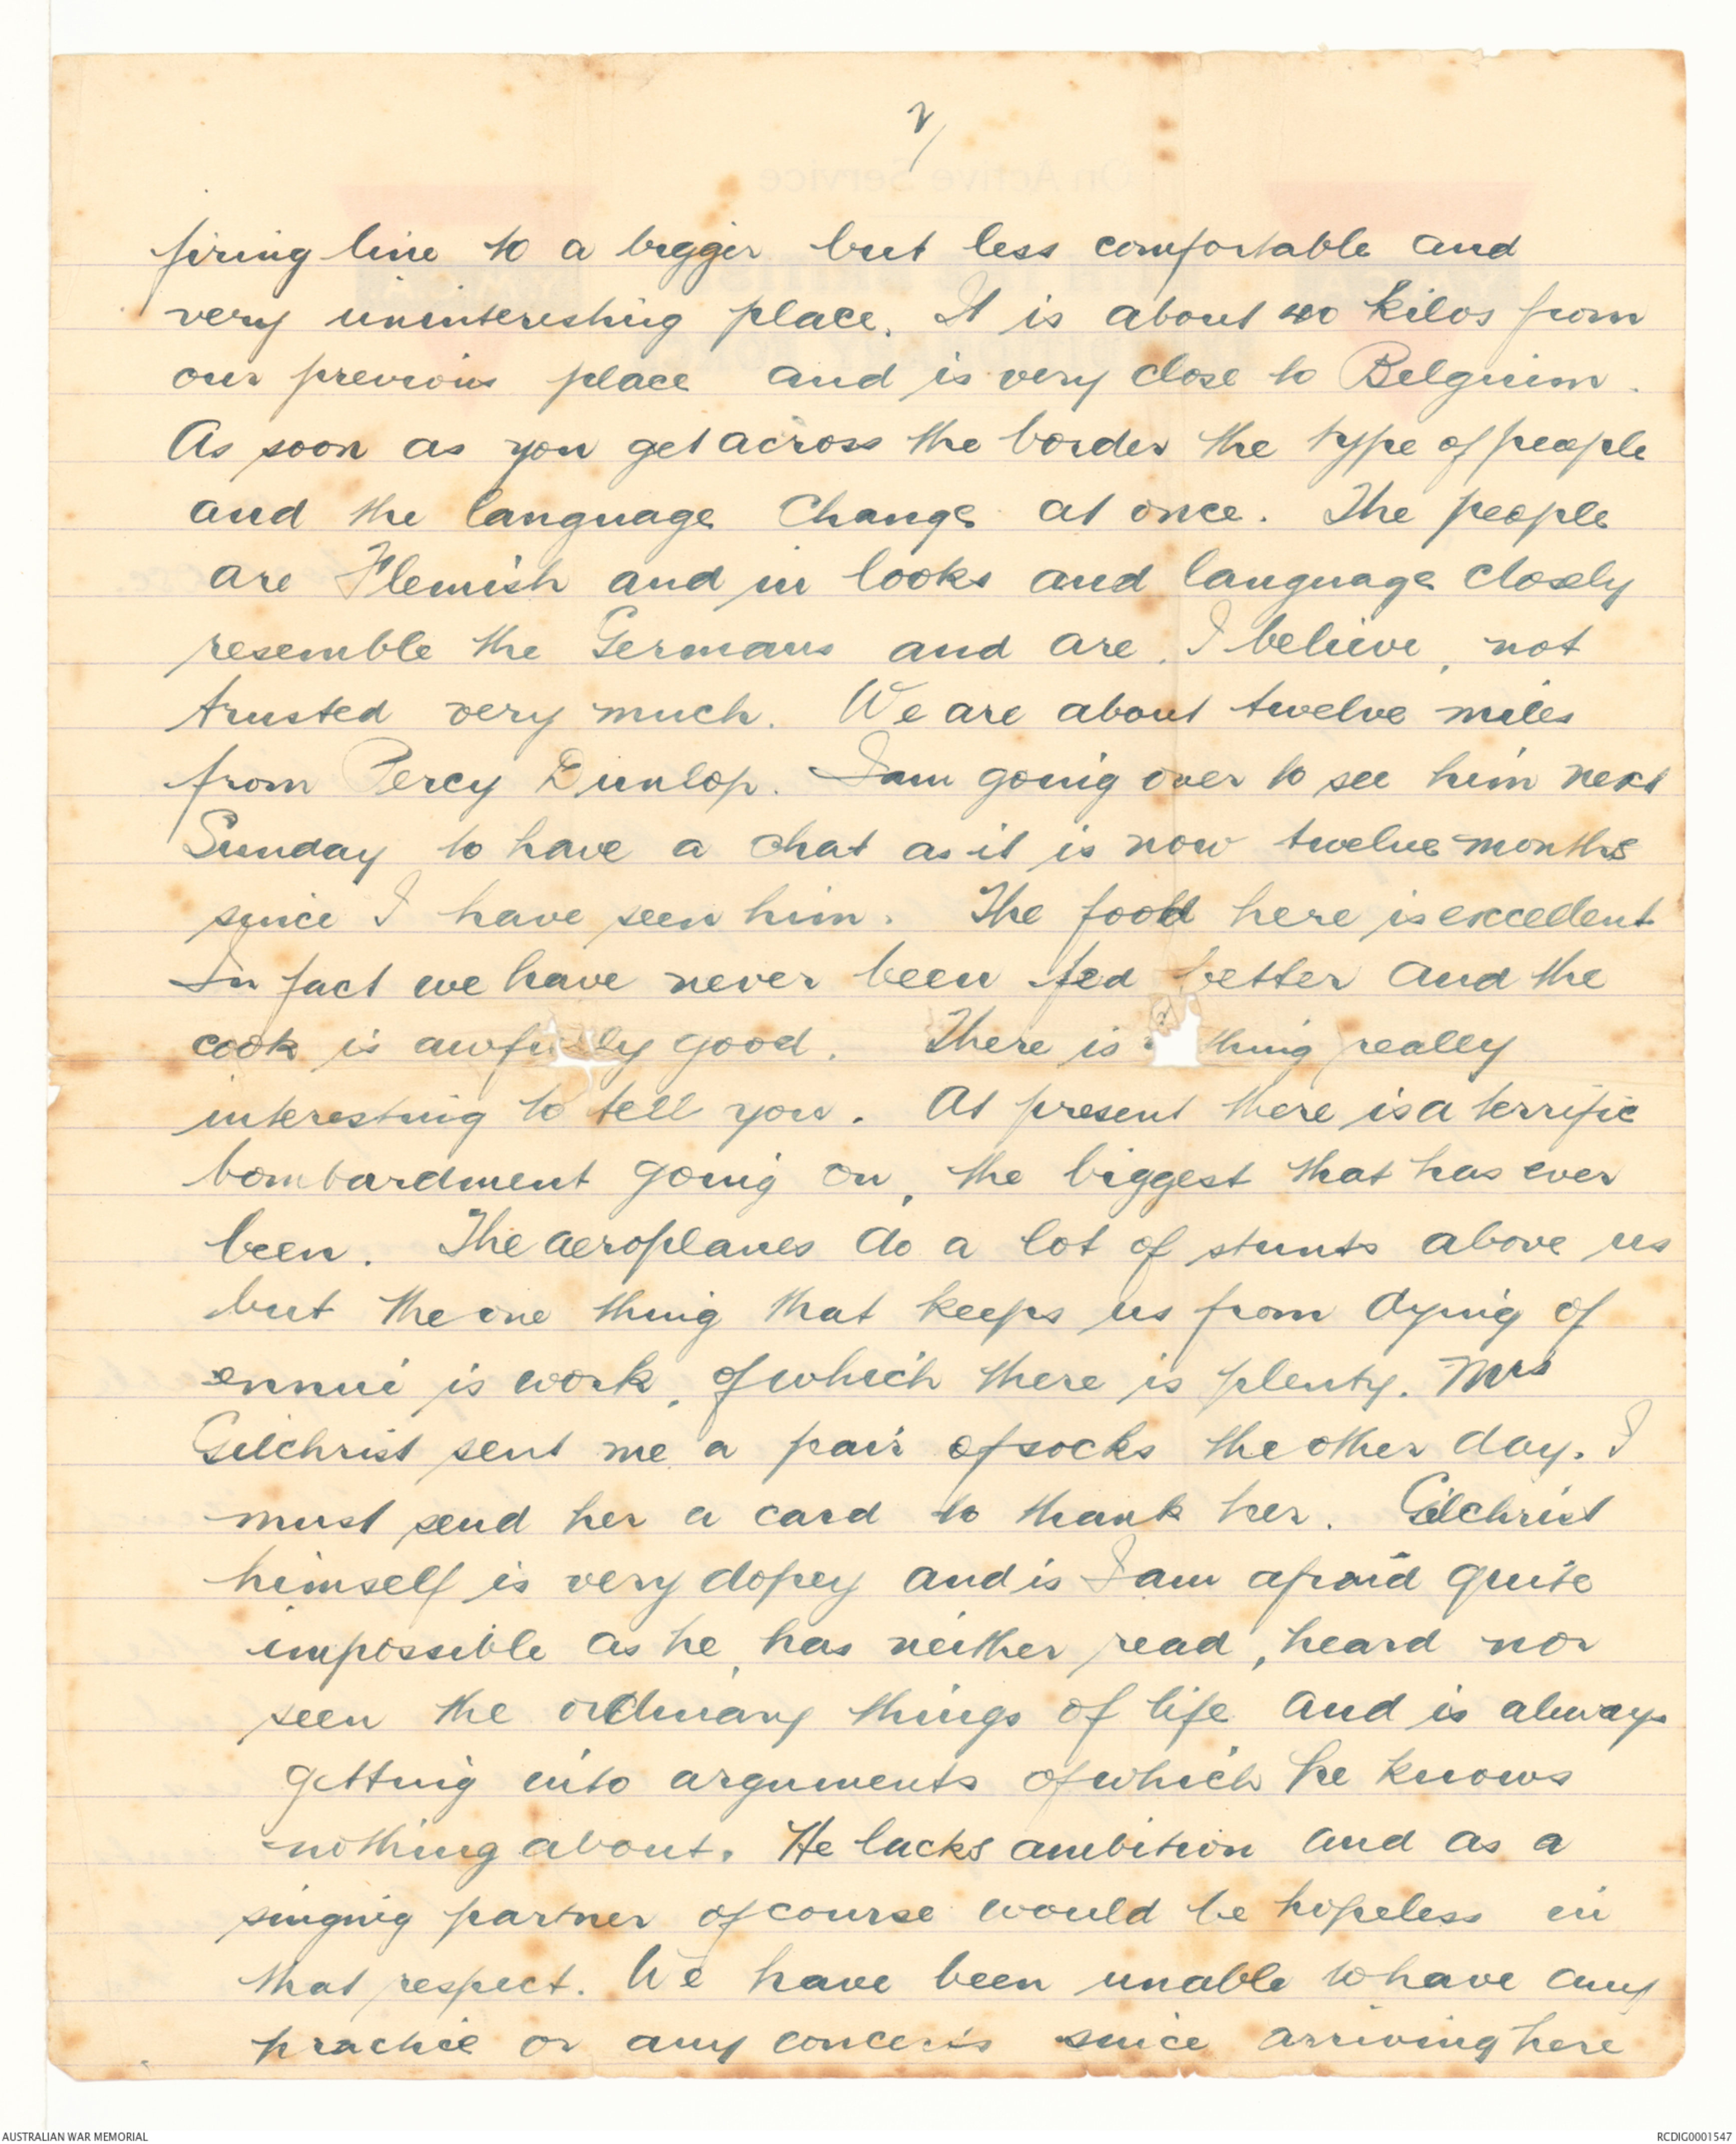 2/
firing line to a bigger but less comfortable and
very uninteresting place. It is about 40 kilos from
our previous place and is very close to Belguim.
As soon as you get across the border the type of people
and the language change at once. The people
are Flemish and in looks and language closely
resemble the Germans and are, I believe, not
trusted very much. We are about twelve miles
from Percy Dunlop. I am going over to see him next
Sunday to have a chat as it is now twelve months
since I have seen him. The food here is excellent
In fact we have never been fed better and the
cook is awfully good. There is thing really
interesting to tell you. At present there is a terrific
bombardment going on, the biggest that has ever
been. The aeroplanes do a lot of stunts above us
but the one thing that keeps us from dying of
ennui is work, of which there is plenty. Mrs
Gilchrist sent me a pair of socks the other day. I
must send her a card to thank her. Gilchrist
himself is very dopey and is I am afraid quite
impossible as he, has neither read, heard nor
seen the ordinary things of life and is always
getting into arguments of which he knows
nothing about. He lacks ambition and as a
singing partner of course would be hopeless in
that respect. We have been unable to have any
practice or any concerts since arriving here
AUSTRALIAN WAR MEMORIAL
RCDIG0001547